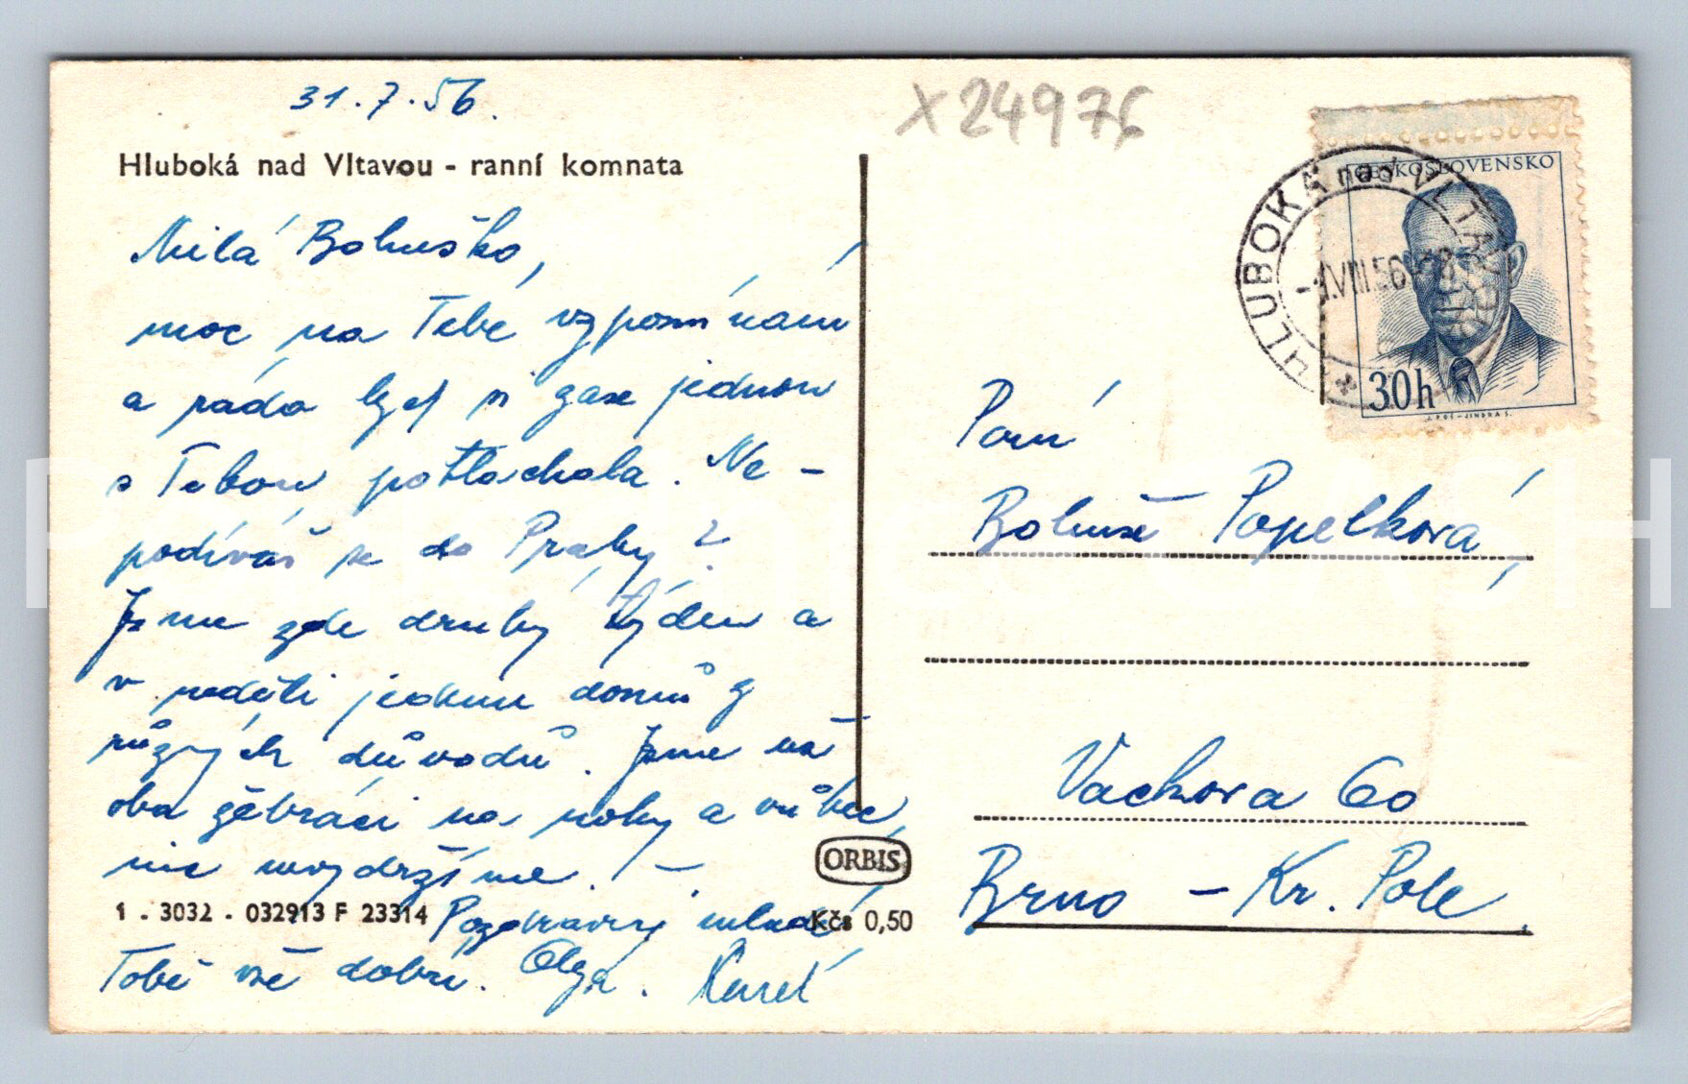 31.7.56.
X24976
Hluboká nad Vltavou - ranní komnata
Milá Bohuško,
moc na Tebe vzpomínám
a ráda bych si zase jednou
s Tebou potlachala. Ne-
podíváš se do Prahy?
Jsme zde druhý týden a
v neděli jedeme domů z
různých důvodů. Jsme už
oba žebráci na nohy a vůbec
nic nevydržíme. -.
Pozdravuj mladé
Tobě vše dobré. Olga. Karel
1 - 3032 - 032913 F 23314
ORBIS
Kčs 0,50
ČESKOSLOVENSKO
30h
HLUBOKÁ nad VLTAVOU
-1.VIII.56
Paní
Bohuše Popelková,
Vachova 60
Brno - Kr. Pole.